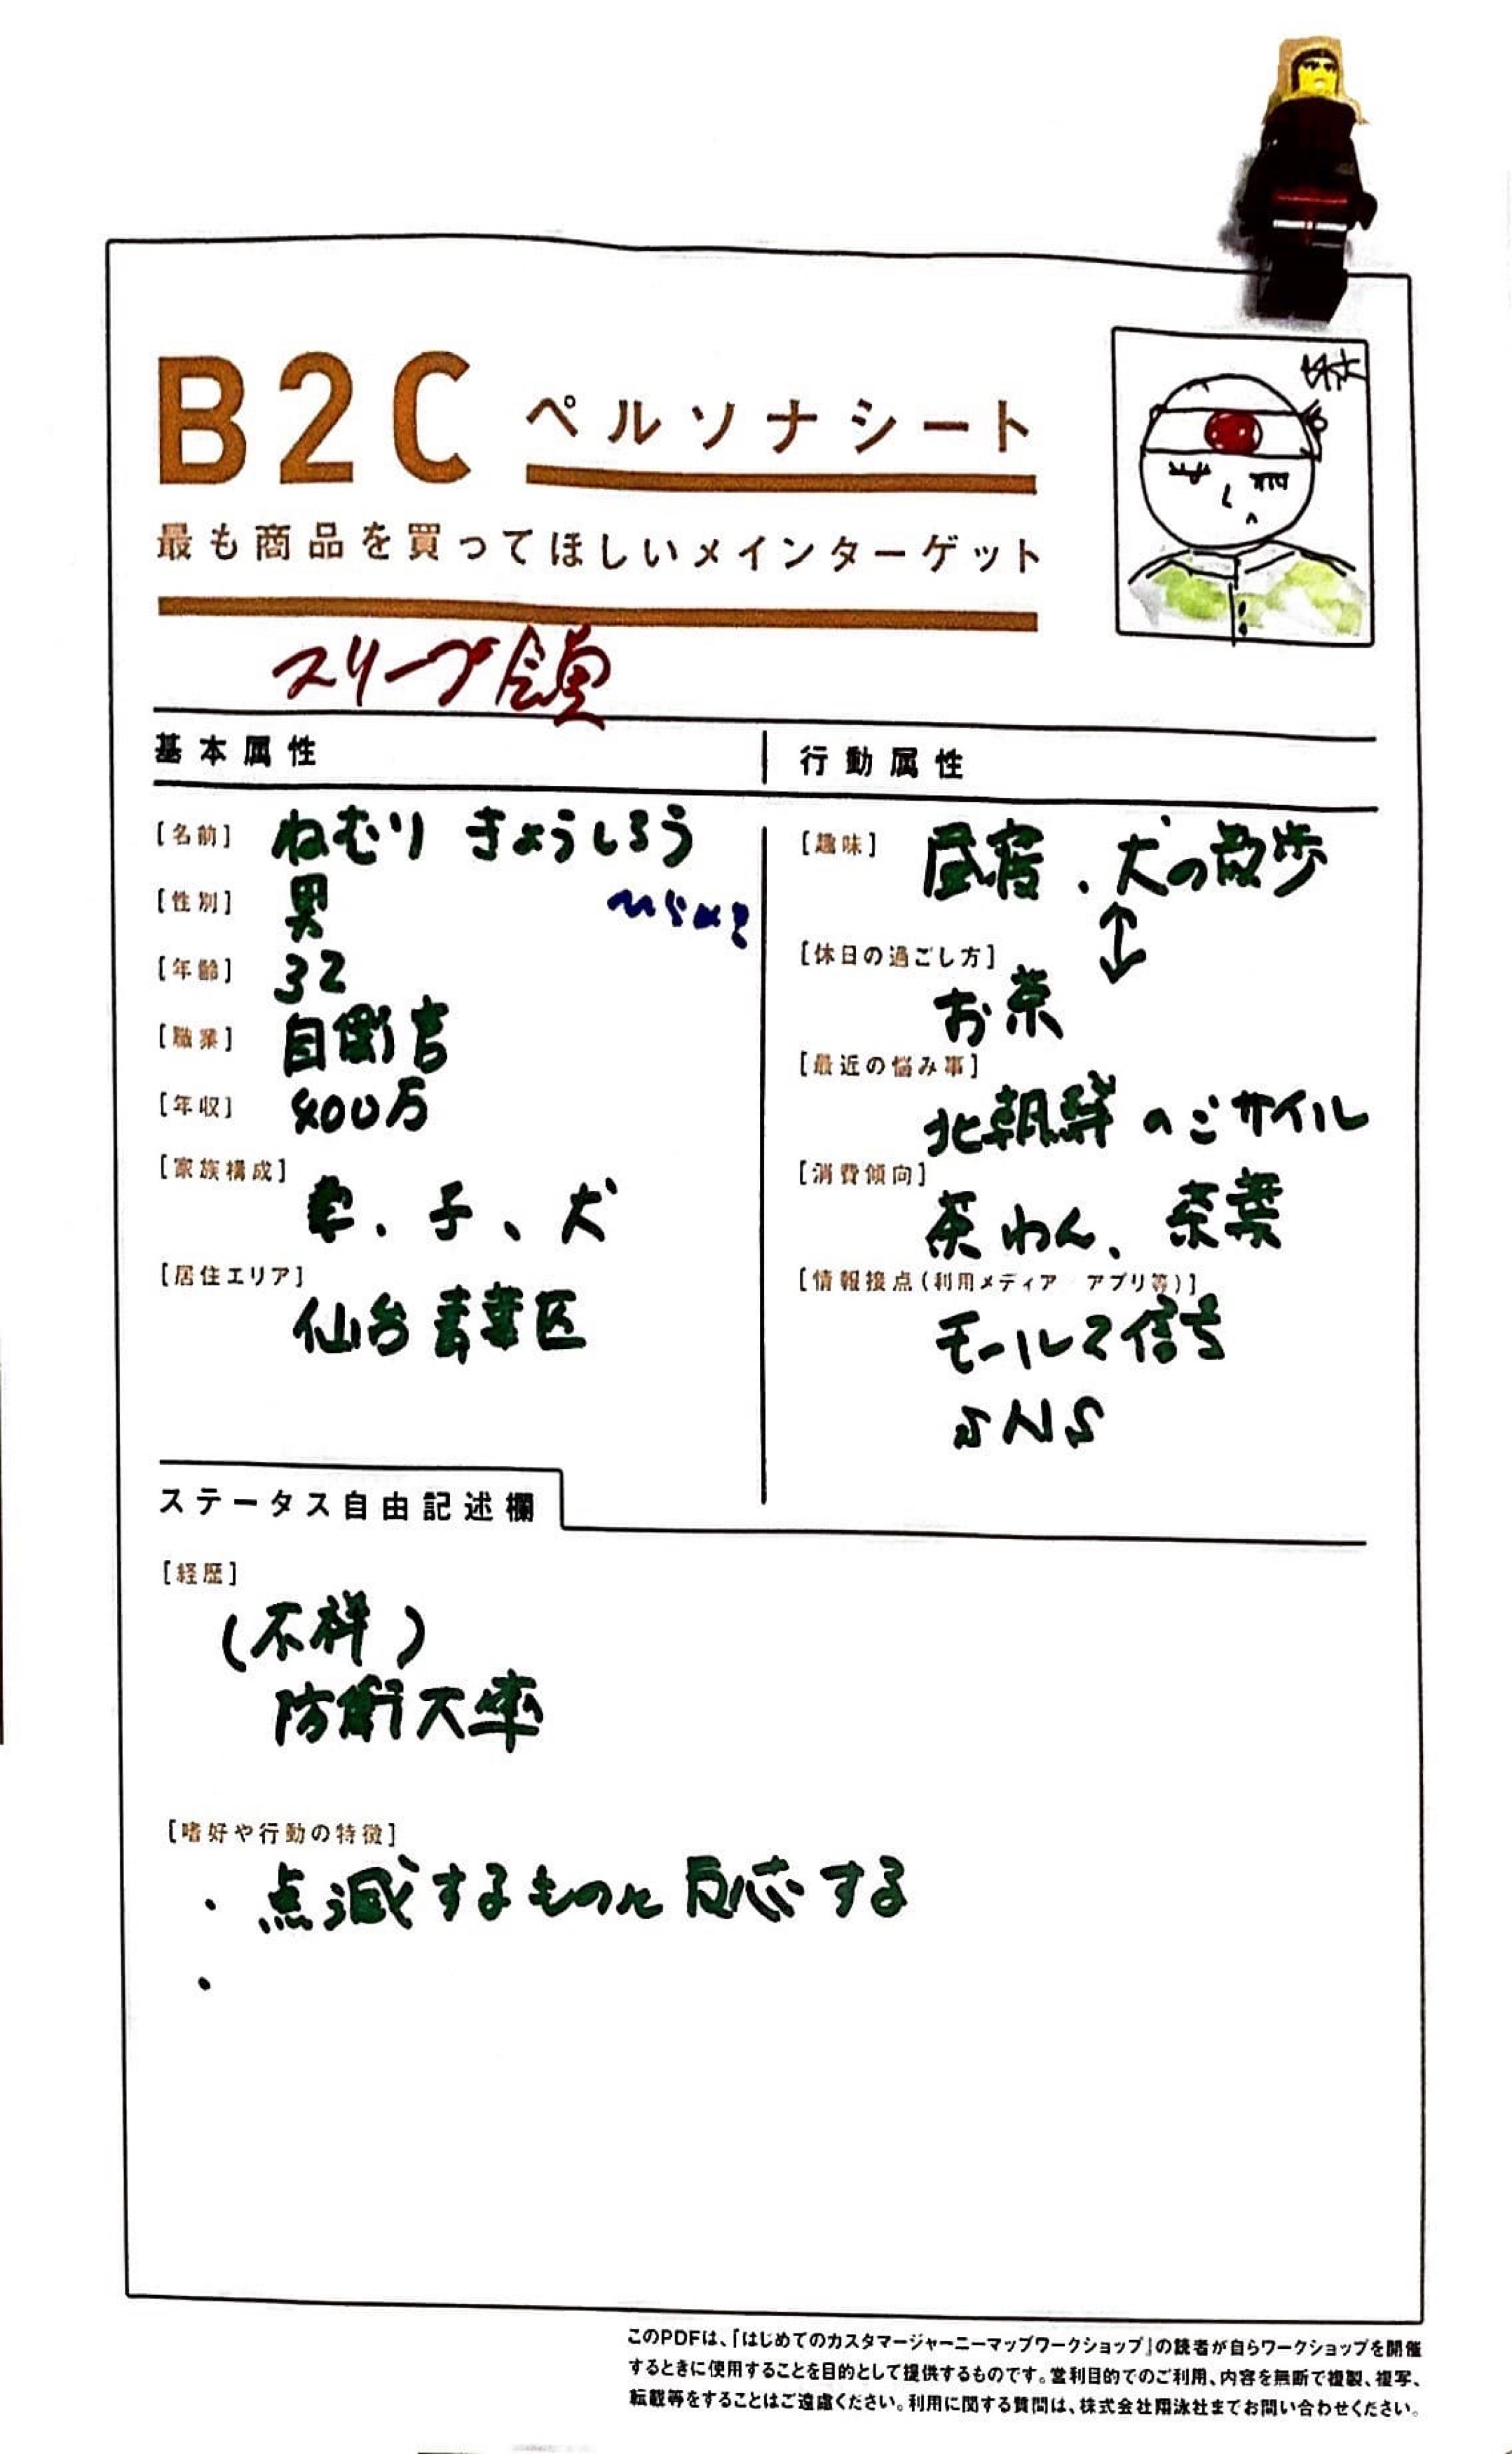 B2C ペルソナシート
最も商品を買ってほしいメインターゲット
スリープ
基本属性
[名前] ねむり きょうしろう
[性別] 男
[年齢] 32
[職業] 自衛官
[年収] 400万
[家族構成]
、子、犬
[居住エリア]
仙台青葉区
行動属性
[趣味] 昼寝、犬の散歩
[休日の過ごし方]
お茶
[最近の悩み事]
北朝鮮のミサイル
[消費傾向]
茶わん、茶葉
[情報接点(利用メディア アプリ等)]
モールス信号
SNS
ステータス自由記述欄
[経歴]
(不祥)
防衛大卒
[嗜好や行動の特徴]
・点滅するものに反応する
・
このPDFは、「はじめてのカスタマージャーニーマップワークショップ」の読者が自らワークショップを開催
するときに使用することを目的として提供するものです。営利目的でのご利用、内容を無断で複製、複写、
転載等をすることはご遠慮ください。利用に関する質問は、株式会社翔泳社までお問い合わせください。